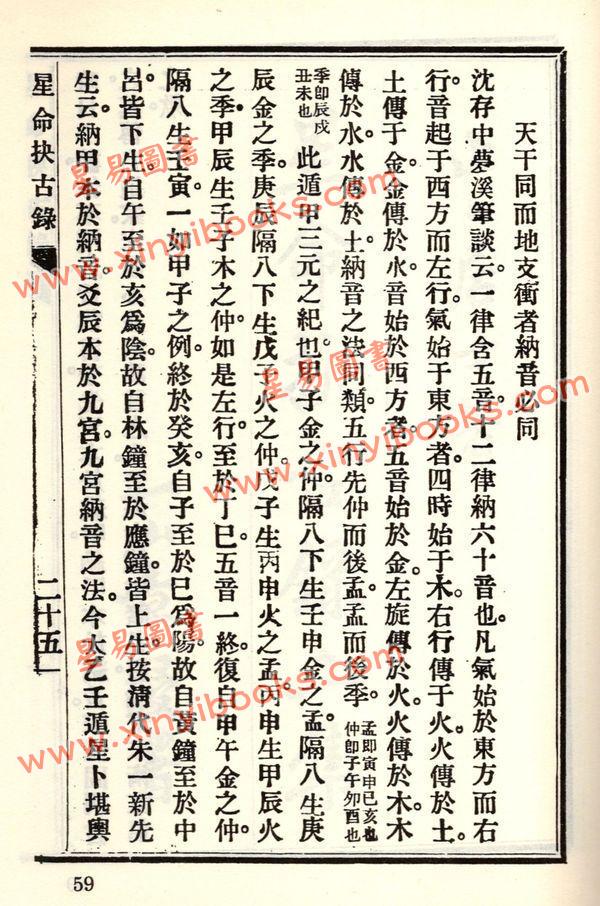 天干同而地支衝者納音必同
沈存中夢溪筆談云。一律含五音。十二律納六十音也。凡氣始於東方而右
行。音起于西方而左行。氣始于東方者。四時始于木。右行傳于火。火傳於土。
土傳于金。金傳於水。音始於西方者。五音始於金。左旋傳於火。火傳於木。木
傳於水。水傳於土。納音之法。同類五行。先仲而後孟。孟而後季。孟即寅申巳亥也仲即子午卯酉也
季即辰戌丑未也此遁甲三元之紀也。甲子金之仲。隔八下生壬申金之孟。隔八生庚
辰金之季。庚辰隔八下生戊子火之仲。戊子生丙申火之孟。丙申生甲辰火
之季。甲辰生壬子木之仲。如是左行。至於丁巳。五音一終。復自甲午金之仲。
隔八生壬寅。一如甲子之例。終於癸亥。自子至於巳爲陽。故自黃鐘至於中
呂。皆下生。自午至於亥爲陰。故自林鐘至於應鐘。皆上生。按清代朱一新先
生云。納甲本於納音。爻辰本於九宮。九宮納音之法。今太乙壬遁星卜堪輿
星命抉古錄
二十五
59
星易圖書
www.xinyibooks.com
星易圖書
www.xinyibooks.com
星易圖書
www.xinyibooks.com